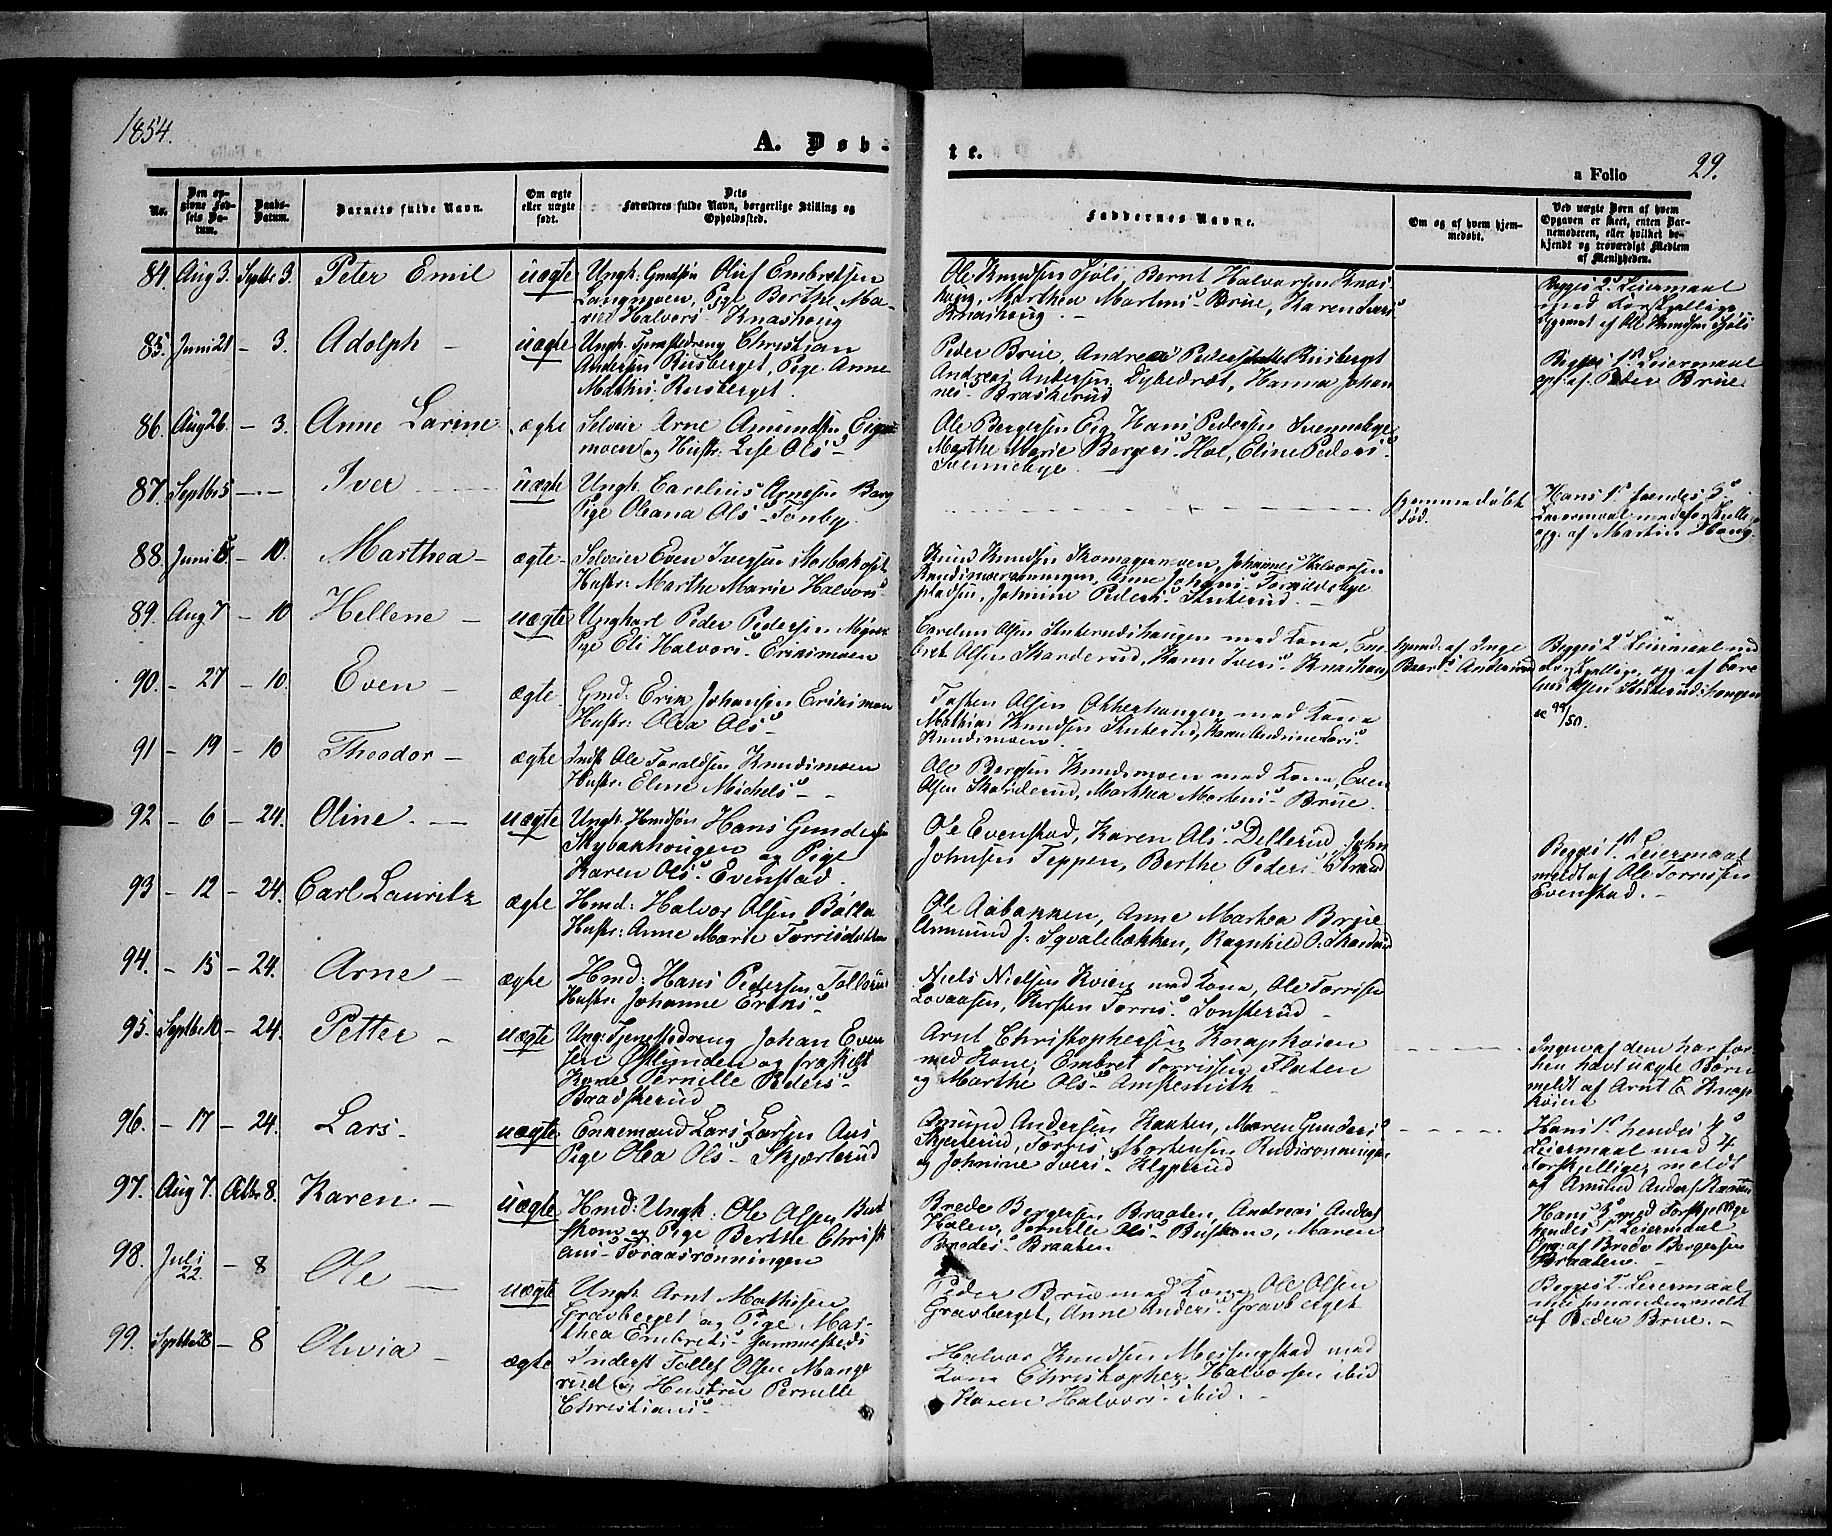 1854.
A. Døb-
te.
a Folio
29.
No.
Den opgivne Fødsels Datum.
Daabs-Datum.
Barnets fulde Navn.
Om ægte eller uægte født.
Dets Forældres fulde Navn, borgerlige Stilling og Opholdssted.
Faddernes Navne.
Om og af hvem hjemmedøbt.
Ved uægte Børn af hvem Opgaven er skeet, enten Barnemoderen, eller hvilket bekjendt og troværdigt Medlem af Menigheden.
84. Aug 3. Septbr 3. Peter Emil uægte
Ungk. Gmdsøn Oluf Embretsen
Langmoen, Pige Berthe Ma-
rie Halvors. Knashoug
Ole Knudsen Sjøli, Bernt Halvorsen Knas-
houg, Marthea Martins. Brue, Karen
Knashoug. —
Begges 2det Leiermaal
med Forskjellige
opgivet af Ole Knudsen Sjøli
85. Juni 21 – 3. Adolph – uægte
Ungk. Tjenestedreng Christian
Andersen Risberget, Pige Anne
Mathis. Risberget.
Peder Brue, Andreas Pedersen Risberget
Andreas Andersen Dybedræt, Hanna Johan-
nes. Braskerud
Begges 1ste Leiermaal
opg. af Peder Brue
86. Aug 26. – 3. Anne Larine ægte
Selveier Arne Amundsen Eig
moen og Hustr. Lise Ols.
Ole Bergersen Eig, Hans Pedersen Svennebye
Marthe Marie Bergers. Hol, Eline Peders.
Svennebye
87. Septbr 5 – – Iver uægte
Ungk. Carelius Arnesen Berg
Pige Oleana Ols. Tonby.
hjemmedøbt
død.
Hans 1ste hendes 3die
Leiermaal med forskjellige
opg. af Martin Houg.
88. Juni – 10. Marthea – ægte
Selveier Even Iversen
Hustr. Marthe Marie Halvors.
Knud Knudsen Skomagermoen, Johannes Halvorsen
Anne Johans.
Johnine Peders. Stuterud. —
89. Aug 7 – 10 Hellene – uægte
Ungkarl Peder Pedersen
Pige Eli Halvors. Eriksmoen
Carelius Olsen Stuterudshaugen med Kone, Em-
bret Olsen Skarderud, Karen Ivers. Knashoug
hjemd. af Inge-
Andersrud
Begges 2det Leiermaal med
Forskjellige, og af Care-
lius Olsen Stuterudshaugen
90. – 27 – 10. Even – ægte
Gmd: Erik Johansen Eriksmoen
Hustr: Olea Ols.
Olsen med Kone
Mathias Knudsen Stuterud, Karen Andrine Lars.
Knudsmoen
91 – 19 – 10 Theodor – ægte
Indst Ole Taraldsen Knudsmoen
Hustr: Eline Michels. –
Ole Bergsen Knudsmoen med Kone, Even
Olsen Skarderud, Marthea Martins. Brue.
92 – 6 – 24. Oline. – uægte
Ungk. Hmdsøn Hans Gunders
Mybakhougen og Pige
Karen Ols. Evenstad.
Ole Evenstad, Karen Ols. Dellerud, John
Johnsen Teppen, Berthe Peders. Strand
Begges 1ste Leiermaal
meldt af Ole Torrissen
Evenstad. –
93 – 12 – 24. Carl Lauritz ægte
Hmd: Halvor Olsen Bakka
Hustr: Anne Marie Torrisdatter
Ole Aabakken, Anne Marthea Brue
Amund J. Sqvalebækken, Ragnhild O. Skarderud
94. – 15 – 24. Arne – ægte
Hmd: Hans Pedersen Tollerud
Hustr. Johanne Eriks.
Niels Nielsen Kvien med Kone, Ole Torrisen
Lovaasen, Kirsten Torris. Sonsterud –
95. Septbr 10 – 24. Petter – uægte
Ung. Tjenestedreng Johan Even-
sen Østlunden og fraskilt
Kone Pernille Peders.
Bradskerud
Arnt Christophersen Knaphøien
med Kone, Embret Torrissen Flaten
og Marthe Ols. Amstesmith –
Ingen af dem har før-
hen havt uægte Børn
meldt af Arnt C. Knap-
høien
96. – 17 – 24. Lars – uægte
Enkemand Lars Larsen Aas
Pige Olea Ols. Skjærterud
Amund Andersen Kaaten, Maren Gunders.
Skjerterud, Torris Mortensen Rudsrønningen
og Johnine Ivers. Klypperud
Hans 1ste hendes 4de
Leiermaal med 4
Forskjellige meldt
af Amund Anders. Kaaten
97. Aug 7. Octbr 8. Karen – uægte
Hmd: Ungk: Ole Olsen Busk-
kom og Pige Berthe Christi-
ans. Toraasrønningen
Brede Bergersen Braaten, Andreas Anders
Holen, Pernille Ols. Buskom, Maren
Bredes. Braaten
Hans 3die med Forskjellige
hendes 1ste Leiermaal
Opg: af Brede Bergersen
Braaten. –
98. Juli 22. – 8 Ole – uægte
Ungk. Arnt Mathisen
Gravberget og Pige Mar-
thea Embrets. Gammelsæds
Peder Brue med Kone, Ole Olsen
Gravberget, Anne Anders. Gravberget
Begges 2det Leiermaal
med hinanden, meldt
af Peder Brue. –
99. Septbr 28 – 8 Olivia – ægte
Inderst Tollef Olsen Mange-
rud og Hustrue Pernille
Christians.
Halvor Knudsen Messingstad med
Kone Christopher Halvorsen ibid
Karen Halvors. ibid. –